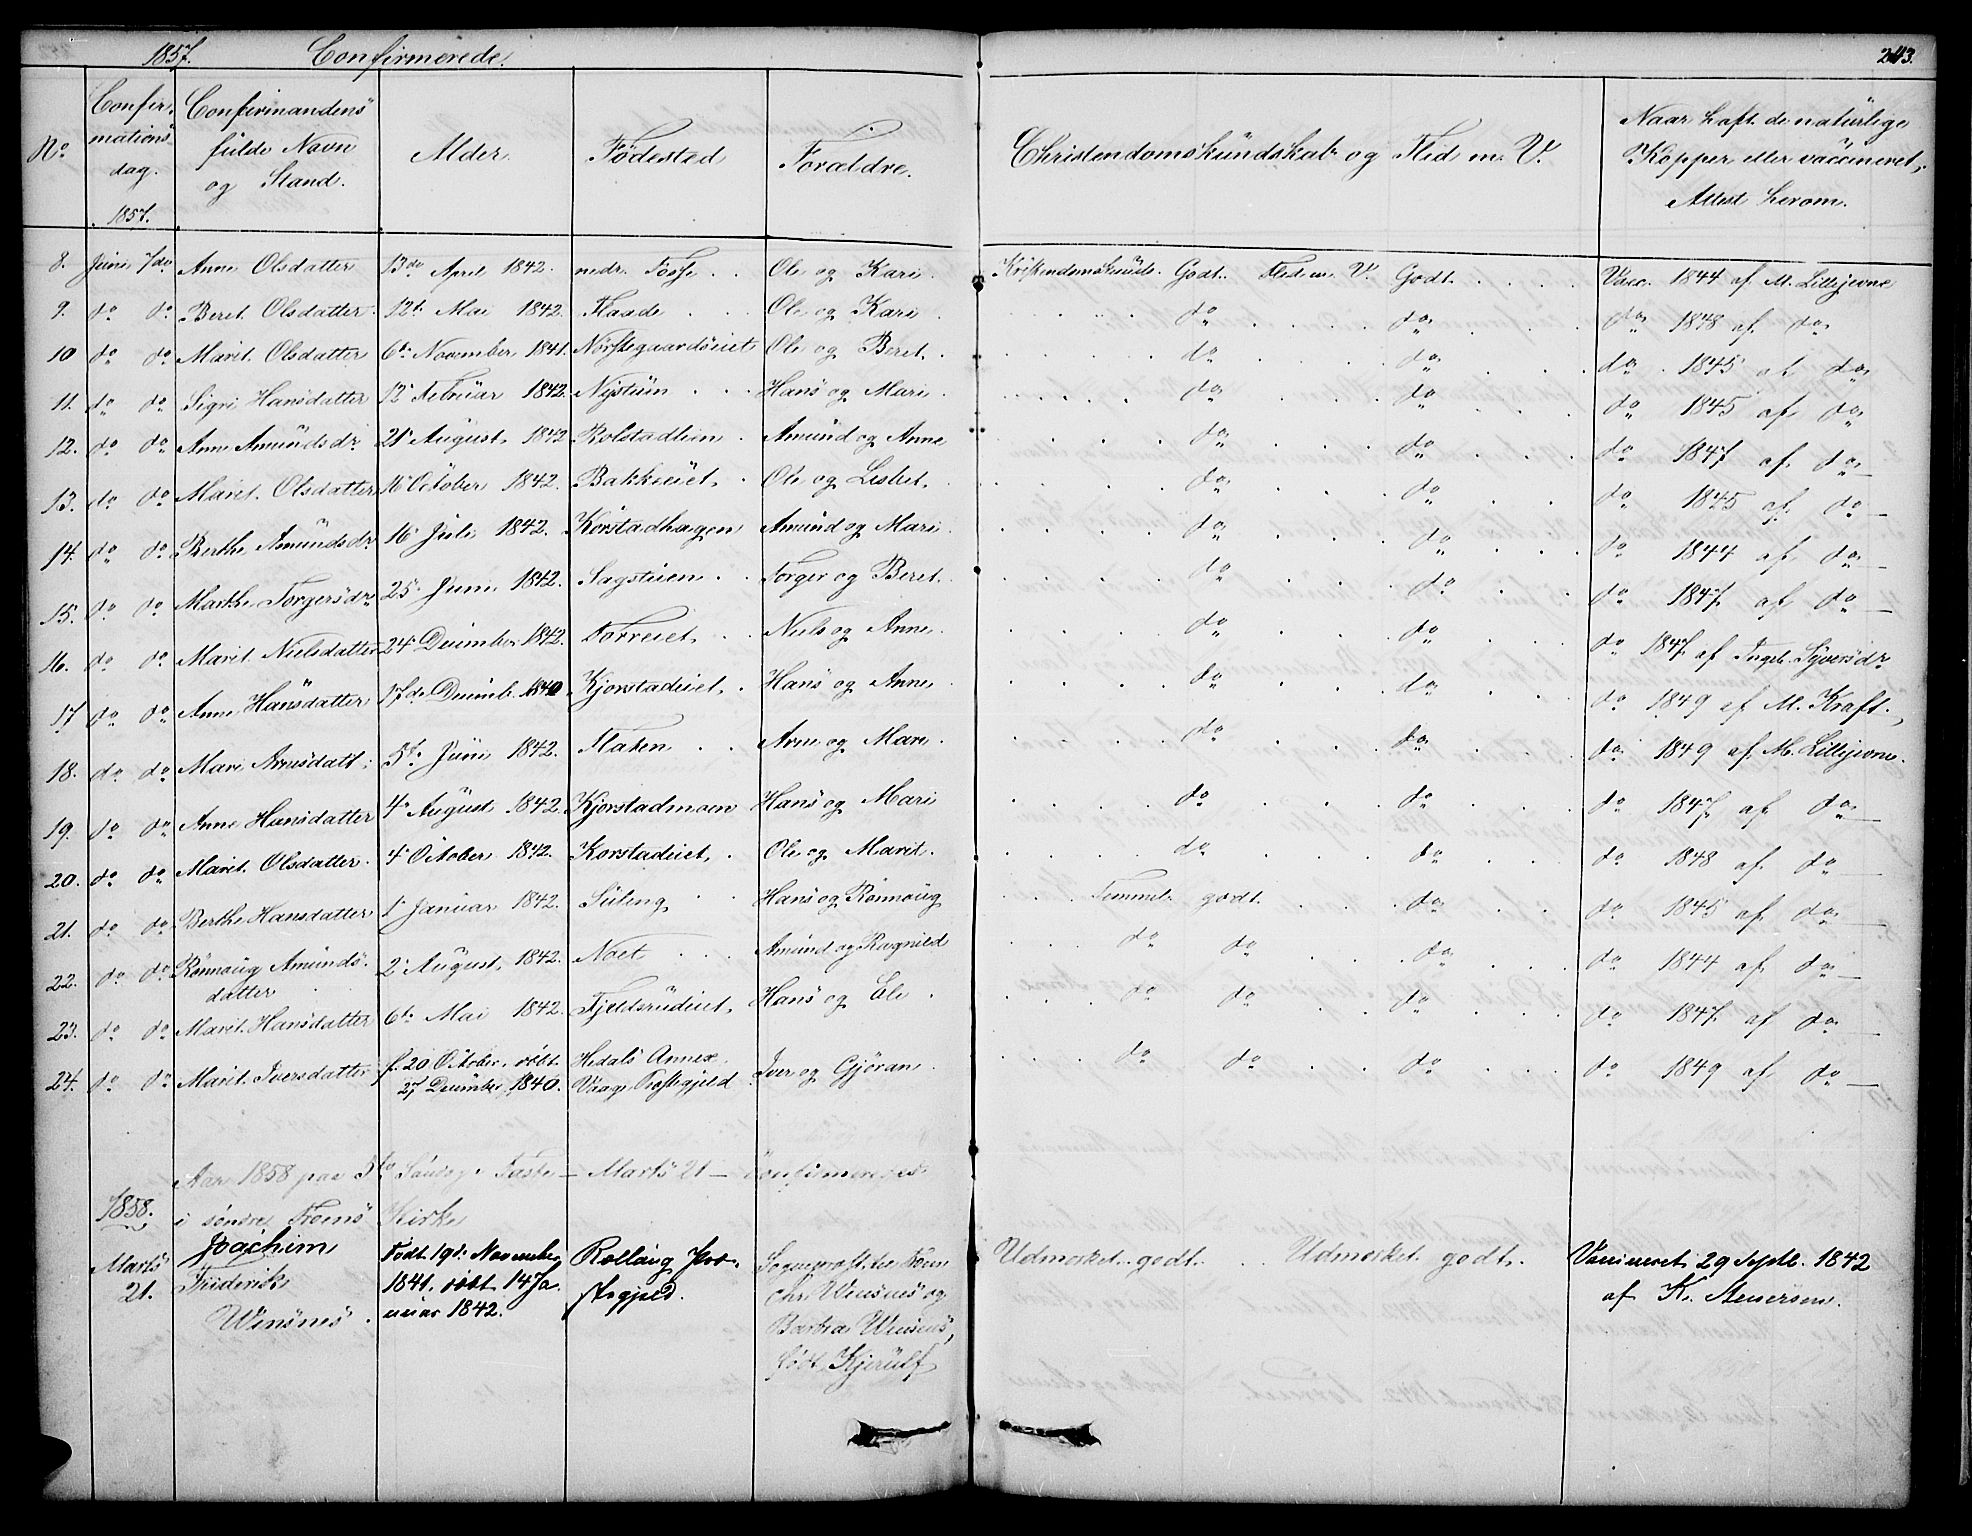 1857. Confirmerede. 243.
No. Confir- Confirmandens Alder. Fødested Forældre. Christendomskundskab og Flid m. V. Naar haft de naturlige
mations fulde Navn Kopper eller vaccineret,
dag. og Stand. Attest herom.
1857.
8. Juni 7de Anne Olsdatter 13de April 1842. nedr. Fosse . . Ole og Kari . Kristendomskunds. Godt. Flid m. V. Godt. . . . Vacc. 1844 af M. Lillijevne
9. do do Beret Olsdatter 12te Mai 1842. Flaade . . Ole og Kari . do do do 1848 af do
10 do do Marit Olsdatter 6te November 1841. Norstegaardseiet Ole og Beret . do do do 1845 af do
11. do do Sigri Hansdatter 12te Februar 1842. Nystuen . . . Hans og Mari . do do do 1845 af do
12. do do Anne Amundsdr 21de August 1842 Rolstadlien . Amund og Anne do do do 1847 af do
13. do do Marit Olsdatter 16 October 1842. Bakkeeiet . Ole og Lisbet . do do do 1845 af do
14. do do Berthe Amundsdr 16 Juli 1842. Korstadhagen Amund og Mari . do do do 1844 af do
15. do do Marthe Torgersdr 25 Juni 1842. Sagstuen . . Torger og Beret . do do do 1847 af do
16. do do Marit Nielsdatter 24 December 1842. Forreiet . . Niels og Anne . do do do 1847 af Ingeb. Syversdr
17 do do Anne Hansdatter 17de Decemb. 1840 Kjorstadeiet . Hans og Anne . do do do 1849 af M. Kraft .
18. do do Mari Arnesdatt. 5te Juni 1842. Flaten . . Arne og Mari . do do do 1849 af M. Lillijevne.
19. do do Anne Hansdatter 4de August 1842. Kjorstadmoen Hans og Mari do do do 1847 af do
20. do do Marit Olsdatter . 4de October 1842. Korstadeiet . Ole og Marit . do do do 1848 af do
21. do do Berthe Hansdatter 1 Januar 1842. Suleng . . Hans og Rønnaug . . . Temmel. godt. do do 1845 af do
22. do do Rønnaug Amunds- 2 August 1842. Noet . . . Amund og Ragnild do do do do 1844 af do
datter
23. do do Marit Hansdatter 6te Mai 1842. Fjeldsrudeiet, Hans og Eli . do do do do 1847 af do
24. do do Marit Iversdatter f. 20 October, døbt Hedals Annex Iver og Gjøran . do do do do 1849 af do
27 December 1840. Vaage Præstegjeld
Aar 1858 paa 5te Søndag i Faste – Marts 21 – confirmeredes
1858. i søndre Froens Kirke
Marts Joachim Født 19de November Rollaug Præ-
21. Friderik 1841, døbt 14 Ja- stegjeld.
Winsnes . nuar 1842.
Sogneprest til Froen
Chr. Winsnes og
Barbra Winsnes,
født Kjerulf
Udmærket godt . . Udmærket godt . Vaccineret 29 Septb. 1842
af K.